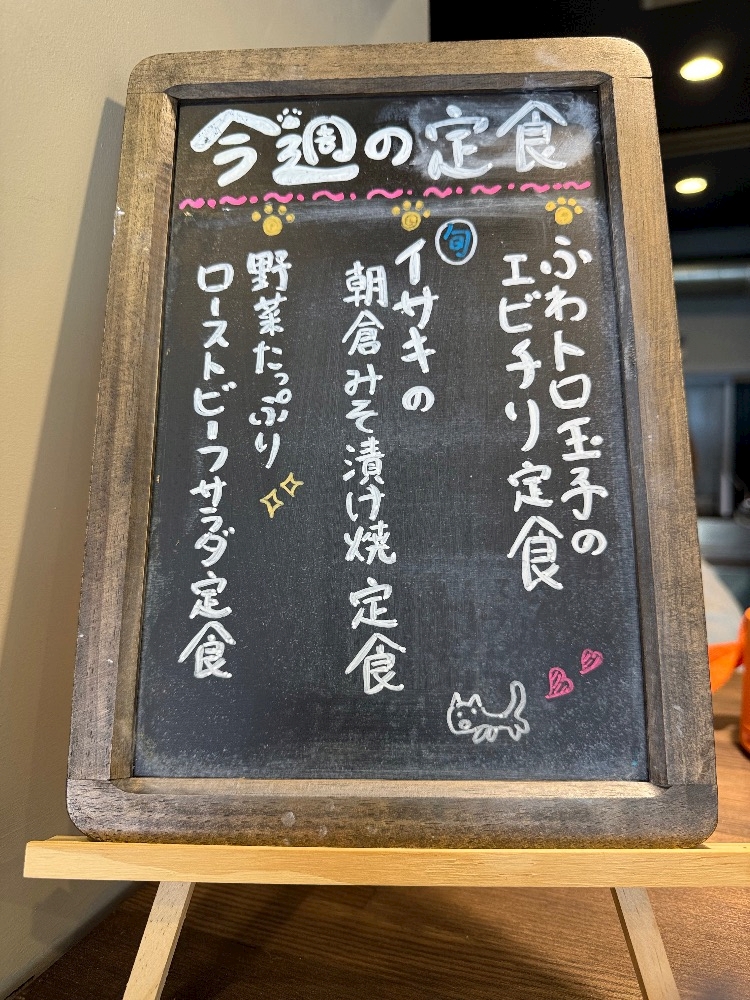 今週の定食
ふわトロ玉子の
エビチリ定食
旬
イサキの
朝倉みそ漬け焼定食
野菜たっぷり
ローストビーフサラダ定食